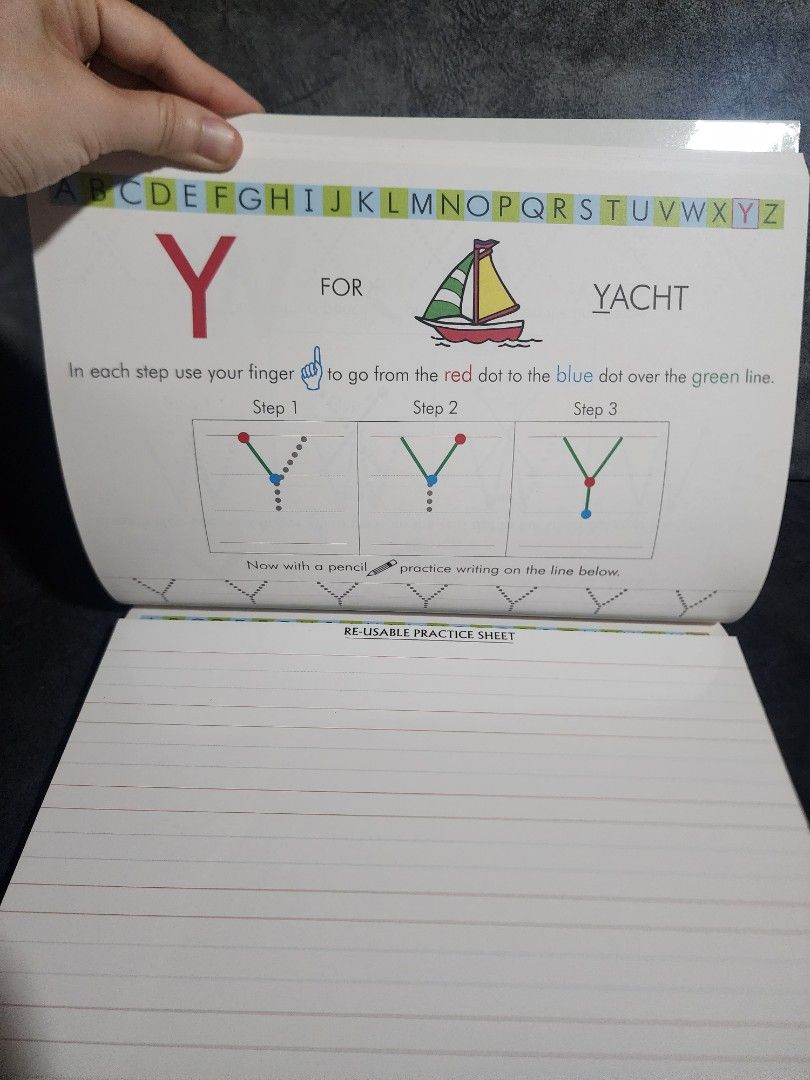 A B C D E F G H I J K L M N O P Q R S T U V W X Y Z
Y FOR YACHT
In each step use your finger to go from the red dot to the blue dot over the green line.
Step 1 Step 2 Step 3
Y Y Y
Now with a pencil practice writing on the line below.
Y Y Y Y Y Y Y
RE-USABLE PRACTICE SHEET